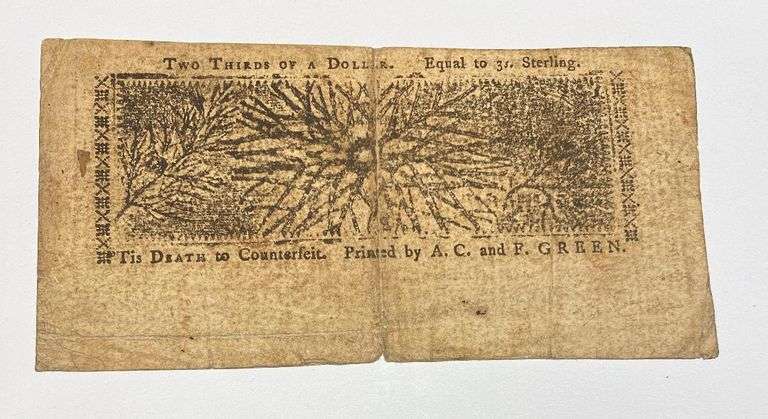 Two Thirds of a Dollar. Equal to 3s. Sterling.
'Tis Death to Counterfeit. Printed by A. C. and F. GREEN.